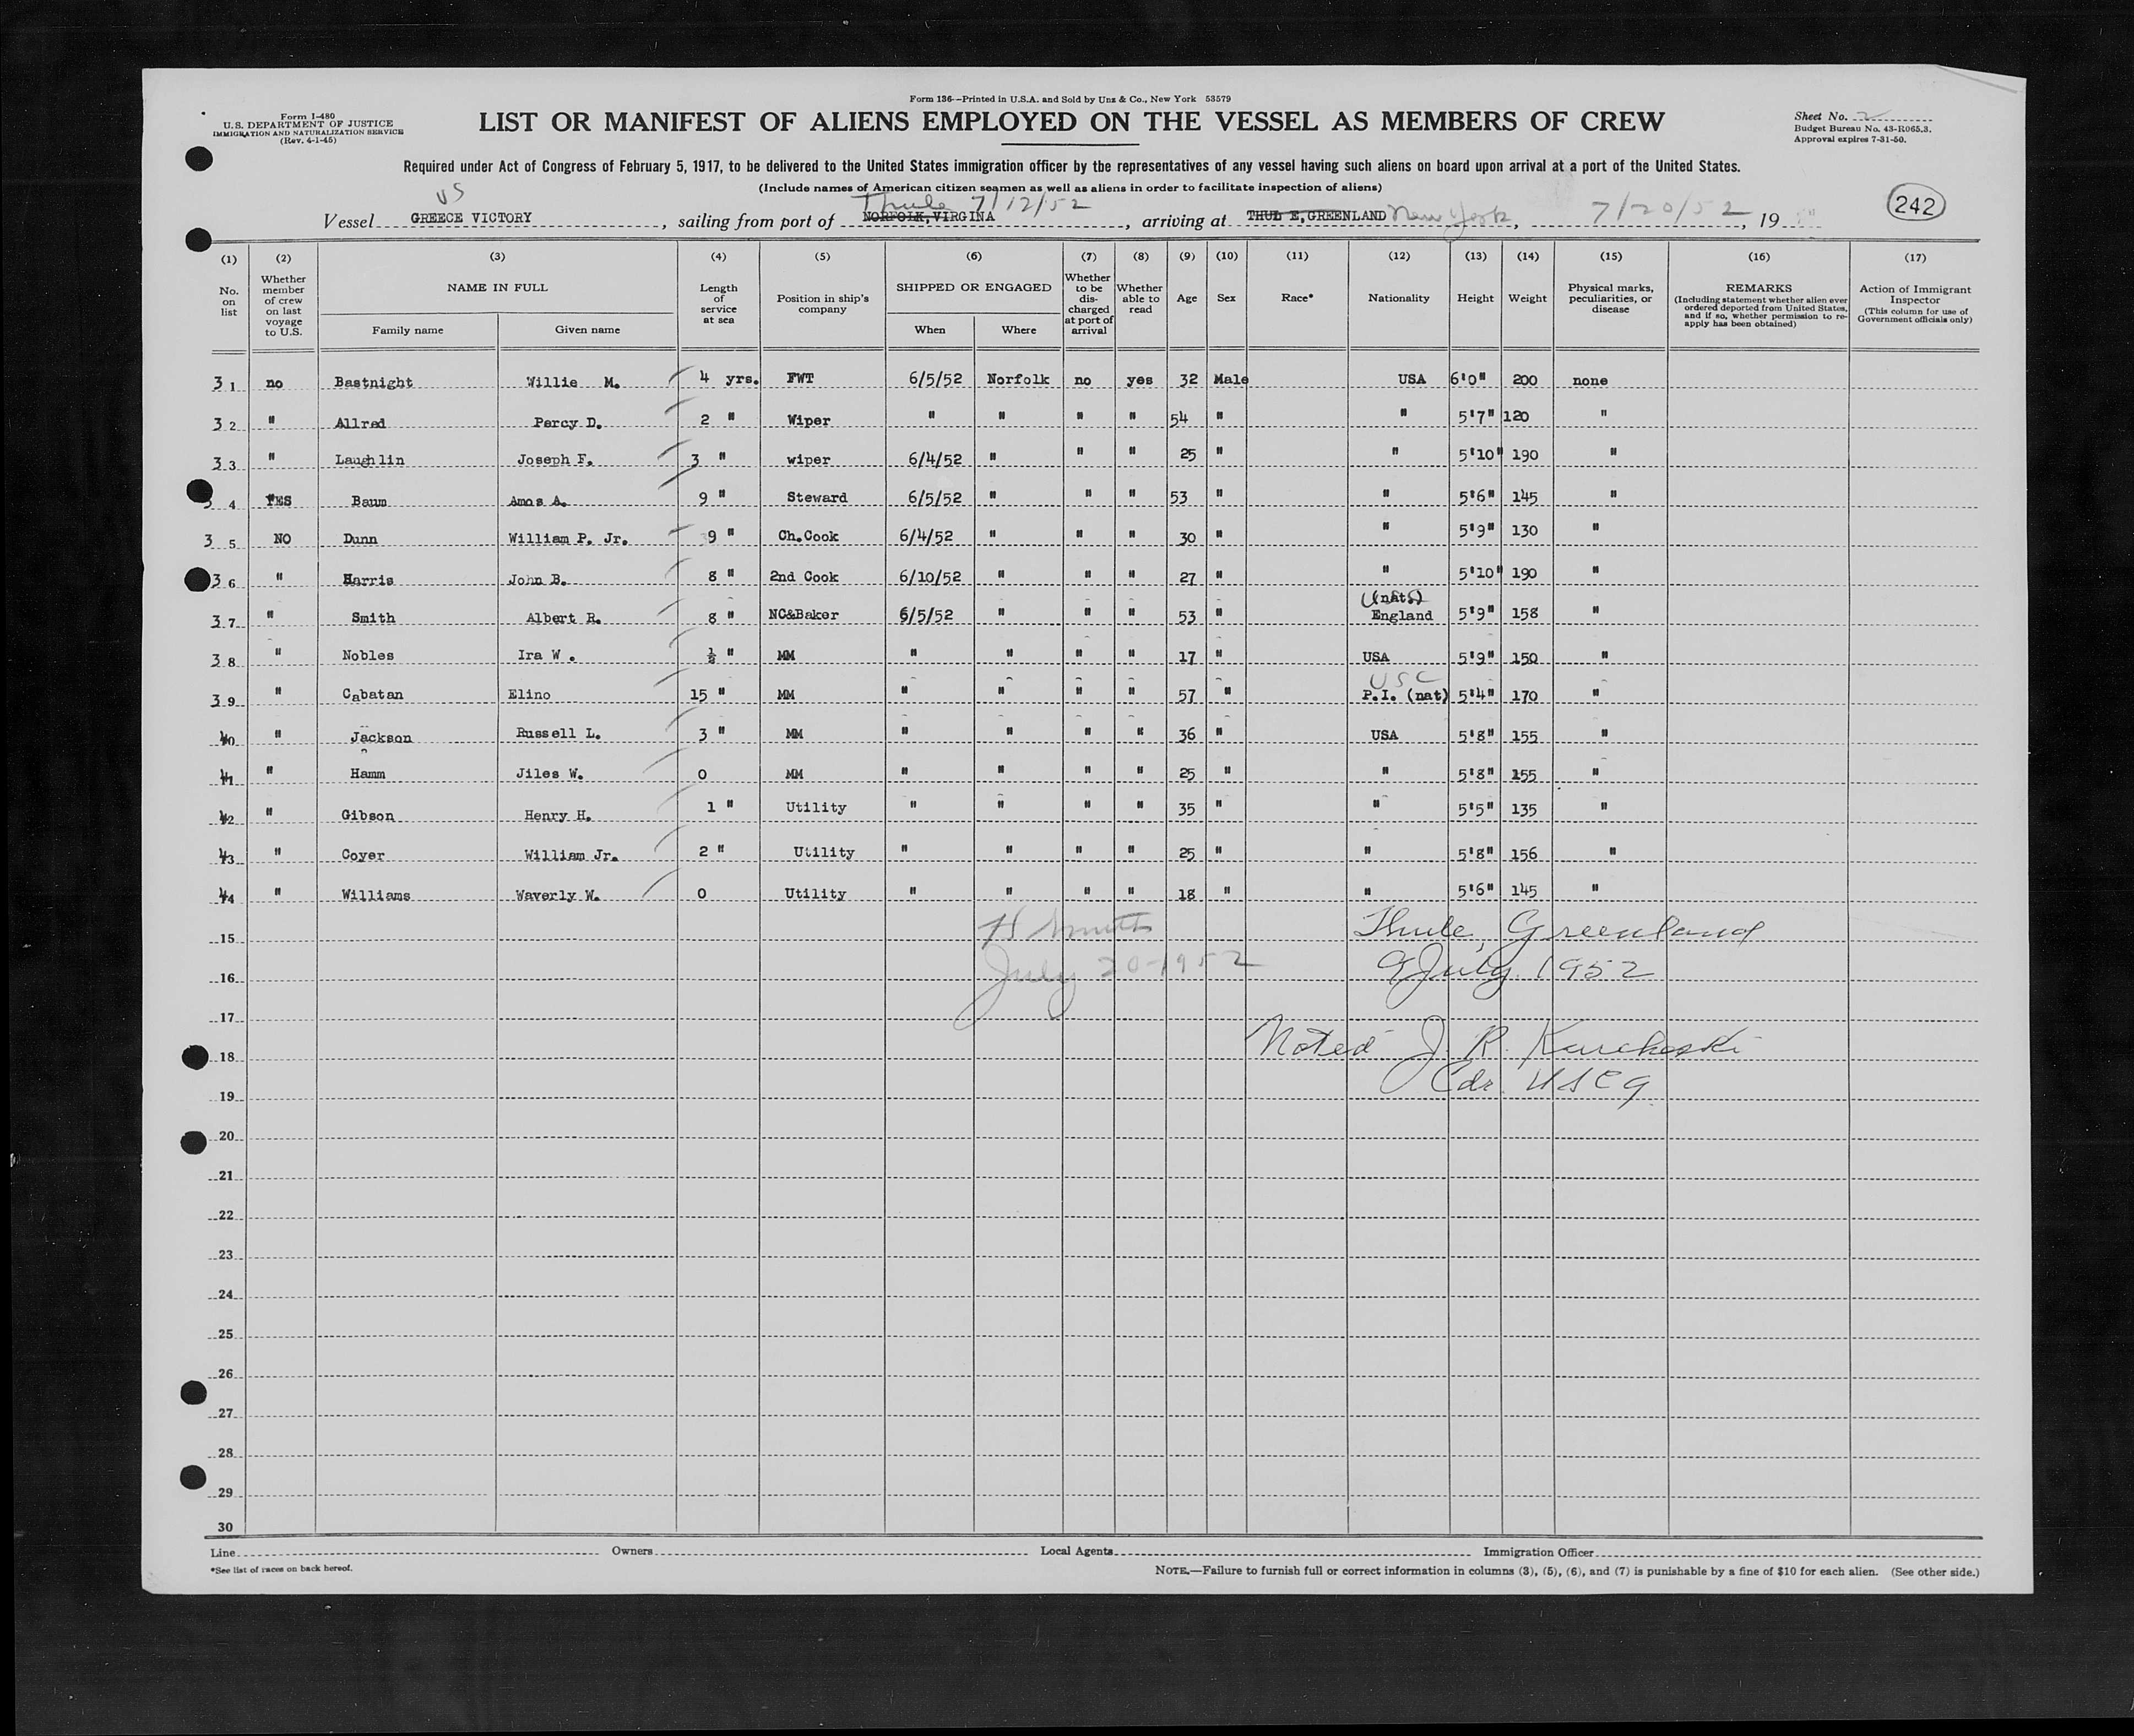 Form 136—Printed in U.S.A. and Sold by Unz & Co., New York 53579
Form I-480
U.S. DEPARTMENT OF JUSTICE
IMMIGRATION AND NATURALIZATION SERVICE
(Rev. 4-1-45)
LIST OR MANIFEST OF ALIENS EMPLOYED ON THE VESSEL AS MEMBERS OF CREW
Sheet No. 2
Budget Bureau No. 43-R065.3.
Approval expires 7-31-50.
Required under Act of Congress of February 5, 1917, to be delivered to the United States immigration officer by the representatives of any vessel having such aliens on board upon arrival at a port of the United States.
(Include names of American citizen seamen as well as aliens in order to facilitate inspection of aliens)
US Thule 7/12/52
Vessel GREECE VICTORY, sailing from port of NORFOLK, VIRGINA, arriving at THUL E, GREENLAND New York, 7/20/52, 19
242
(1) (2) (3) (4) (5) (6) (7) (8) (9) (10) (11) (12) (13) (14) (15) (16) (17)
No. on list
Whether member of crew on last voyage to U.S.
NAME IN FULL
Family name Given name
Length of service at sea
Position in ship's company
SHIPPED OR ENGAGED
When Where
Whether to be discharged at port of arrival
Whether able to read
Age
Sex
Race*
Nationality
Height
Weight
Physical marks, peculiarities, or disease
REMARKS
(Including statement whether alien ever ordered deported from United States, and if so, whether permission to re-apply has been obtained)
Action of Immigrant Inspector
(This column for use of Government officials only)
31 no Bastnight Willie M. 4 yrs. FWT 6/5/52 Norfolk no yes 32 Male USA 6'0" 200 none
32 " Allred Percy D. 2 " Wiper " " " " 54 " " 5'7" 120 "
33 " Laughlin Joseph F. 3 " wiper 6/4/52 " " " 25 " " 5'10" 190 "
3 4 YES Baum Amos A. 9 " Steward 6/5/52 " " " 53 " " 5'6" 145 "
3 5 NO Dunn William P. Jr. 9 " Ch.Cook 6/4/52 " " " 30 " " 5'9" 130 "
36 " Harris John B. 8 " 2nd Cook 6/10/52 " " " 27 " " 5'10" 190 "
37 " Smith Albert R. 8 " NC&Baker 6/5/52 " " " 53 " (nat.) England 5'9" 158 "
38 " Nobles Ira W. ½ " MM " " " " 17 " USA 5'9" 150 "
39 " Cabatan Elino 15 " MM " " " " 57 " USC P.I. (nat) 5'4" 170 "
40 " Jackson Russell L. 3 " MM " " " " 36 " USA 5'8" 155 "
41 " Hamm Jiles W. 0 MM " " " " 25 " " 5'8" 155 "
42 " Gibson Henry H. 1 " Utility " " " " 35 " " 5'5" 135 "
43 " Coyer William Jr. 2 " Utility " " " " 25 " " 5'8" 156 "
44 " Williams Waverly W. 0 Utility " " " " 18 " " 5'6" 145 "
15 H Smith Thule, Greenland
16 July 20-1952 9 July 1952
17
18 Noted J. R. Karcheski
19 Cdr. USCG
20
21
22
23
24
25
26
27
28
29
30
Line Owners Local Agents Immigration Officer
*See list of races on back hereof.
NOTE.—Failure to furnish full or correct information in columns (3), (5), (6), and (7) is punishable by a fine of $10 for each alien. (See other side.)